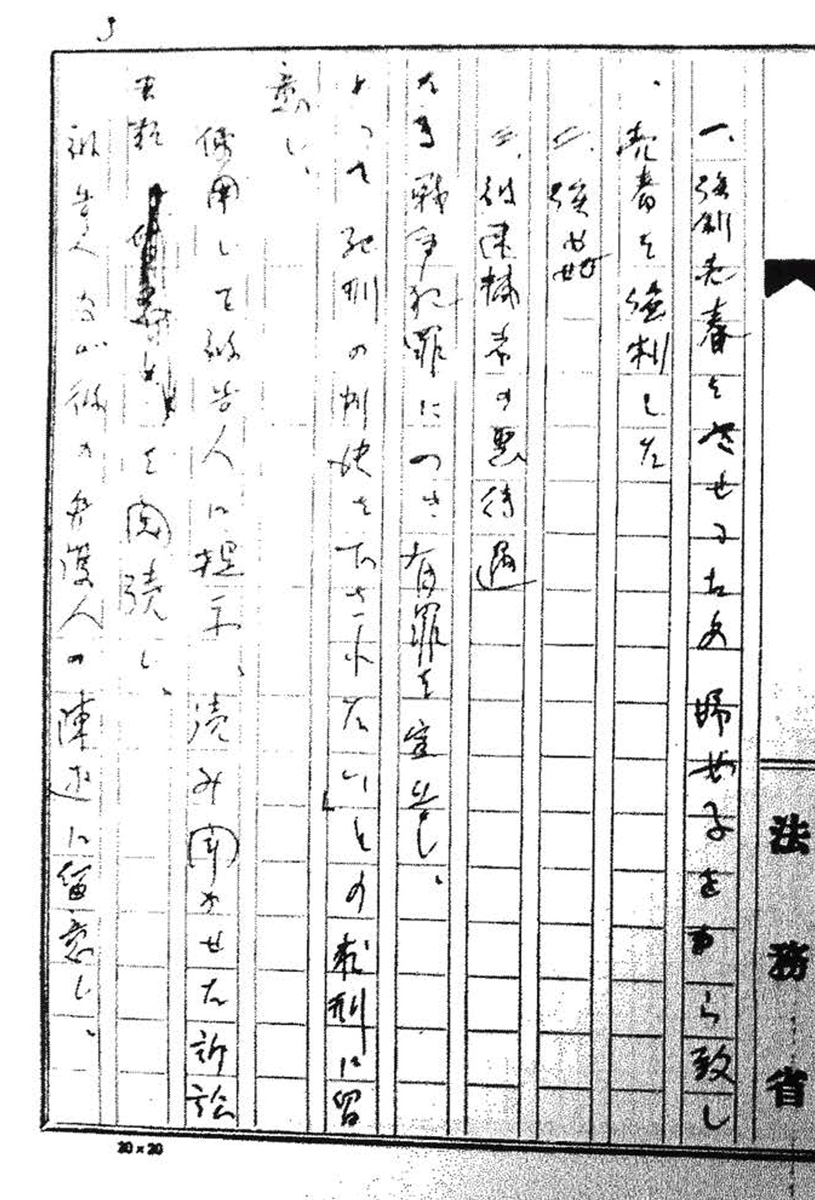 一、強制売春をさせるため婦女子をら致し
、売春を強制した
二、強姦
三、被逮捕者の悪待遇
なる戦争犯罪につき有罪を宣告し、
よつて死刑の判決を下されたいとの求刑に留
意し、
使用して被告人に提示、読み聞かせた訴訟
書類を閲読し、
被告人及び彼の弁護人の陳述に留意し、
法務省
20×20